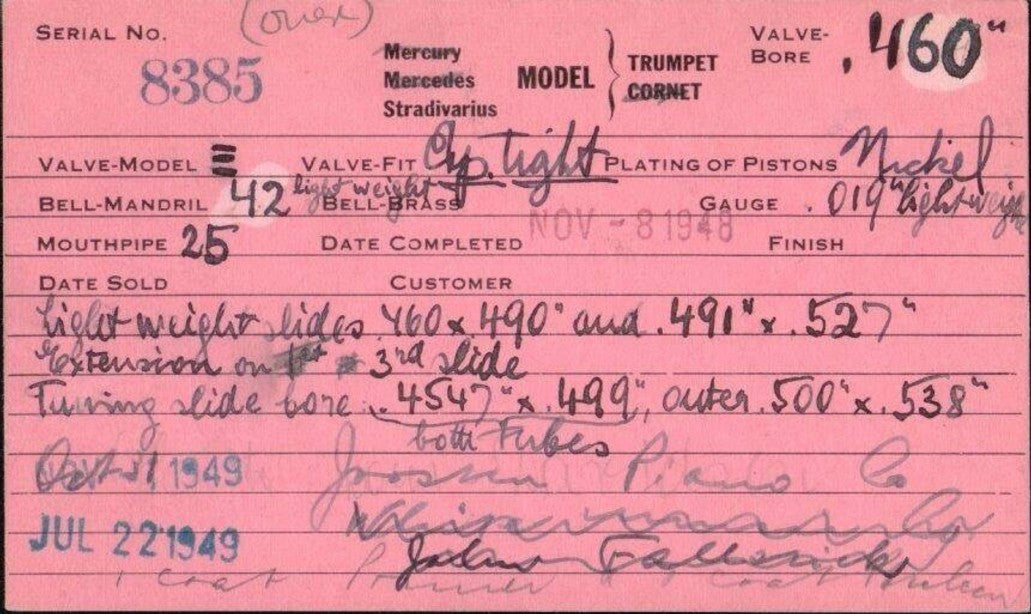 (over)
SERIAL NO. 8385
Mercury
Mercedes
Stradivarius
MODEL
TRUMPET
CORNET
VALVE-BORE .460"
VALVE-MODEL VALVE-FIT tight PLATING OF PISTONS Nickel
BELL-MANDRIL 42 light weight BELL-BRASS GAUGE .019" light weight
MOUTHPIPE 25 DATE COMPLETED NOV - 8 1948 FINISH
DATE SOLD CUSTOMER
Light weight slides .460 x .490" and .491" x .527"
Extension on 3rd slide
Tuning slide bore .4547" x .499", outer .500" x .538"
both Tubes
1949 Piano Co
JUL 22 1949 John
1 coat coat